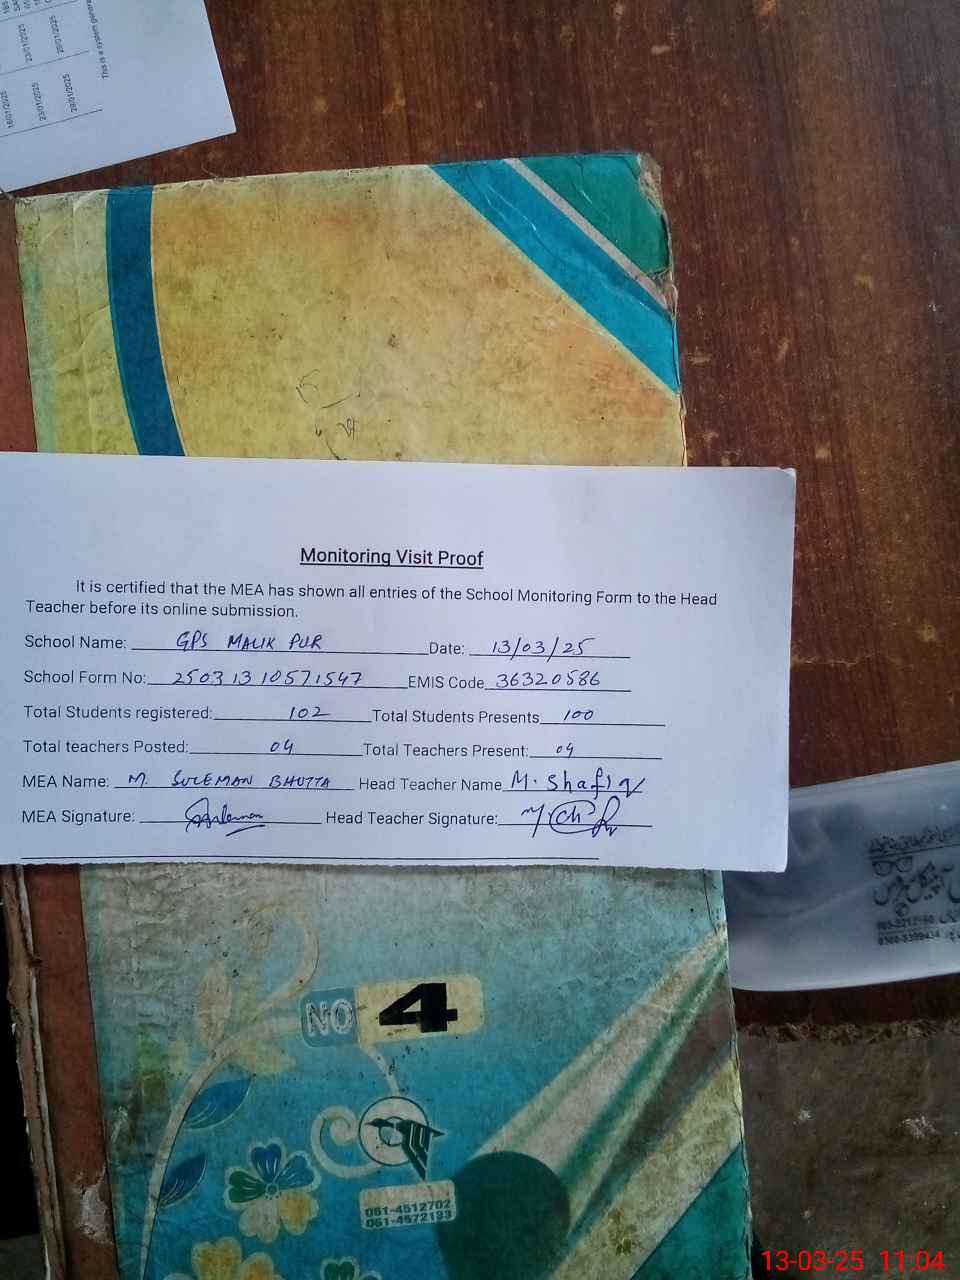 This is a system genera
28/01/2025
23/01/2025
18/01/2025
Monitoring Visit Proof
It is certified that the MEA has shown all entries of the School Monitoring Form to the Head
Teacher before its online submission.
School Name: GPS MALIK PUR Date: 13/03/25
School Form No: 25031310571547 EMIS Code 36320586
Total Students registered: 102 Total Students Presents 100
Total teachers Posted: 04 Total Teachers Present: 04
MEA Name: M. SULEMAN BHUTTA Head Teacher Name M. Shafiq
MEA Signature: Head Teacher Signature:
NO 4
061-4512702
061-4572133
13-03-25 11:04